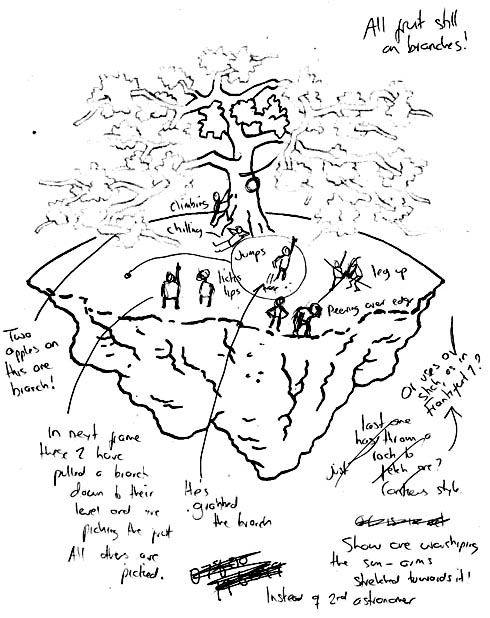 All fruit still
on branches!
Climbing
chilling
Jumps
licks
lips
leg up
Peering over edge
Two
apples on
this one
branch!
In next frame
these 2 have
pulled a branch
down to their
level and are
picking the fruit
All others are
picked.
He's
grabbed
the branch
Or uses a
stick as in
last one
has thrown a
rock to
just fetch one?
style
Show one worshiping
the sun - arms
stretched towards it!
Instead of 2nd astronomer